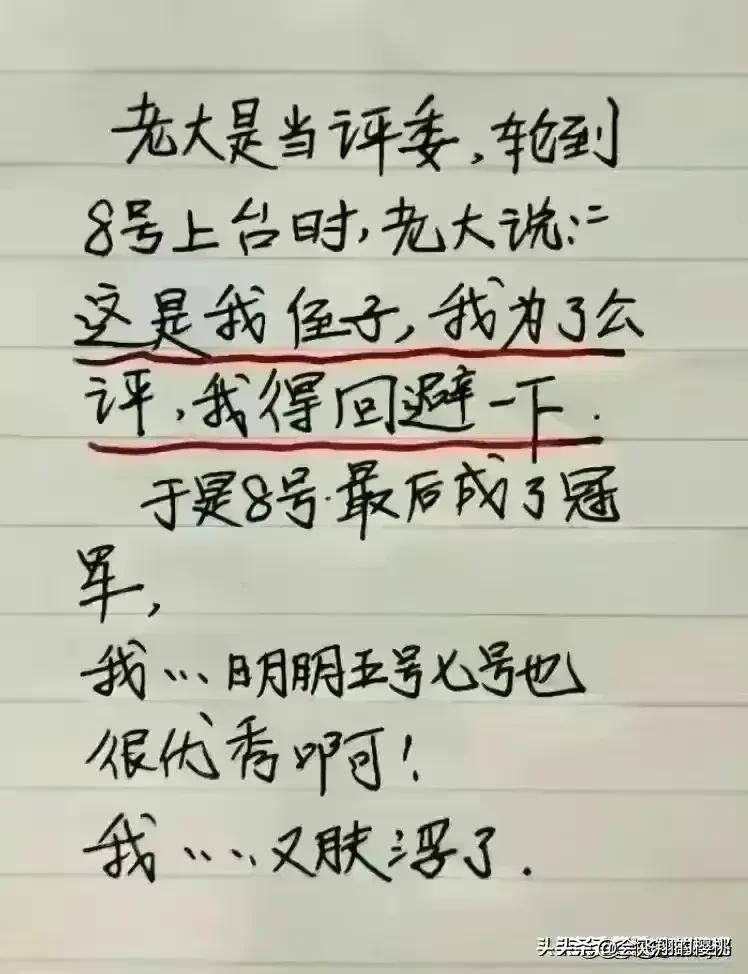 老大是当评委,轮到
8号上台时,老大说:"
这是我侄子,我为了公
评,我得回避一下.
于是8号.最后成了冠
军,
我...明明五号七号也
很优秀啊!
我....又肤浮了.
头条@会飞翔的樱桃